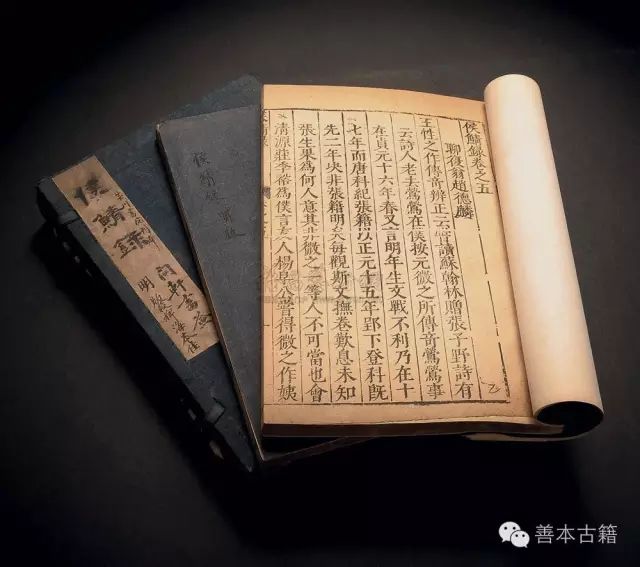 侯鯖錄卷之五
聊復翁趙德麟
王性之作傳奇辨正云嘗讀蘇翰林贈張子野詩有
云詩人老去鶯鶯在僕按元微之所傳奇鶯鶯事
在貞元十六年春又言明年生文戰不利乃在十
七年而唐科紀張籍以正元十五年郢下登科既
先二年决非張籍明矣每觀斯文撫卷歎息未知
張生果為何人意其非微之一等人不可當也會
清源莊季裕為僕言友人楊阜公嘗得微之作姨
侯鯖錄 明板
侯鯖錄
善本古籍